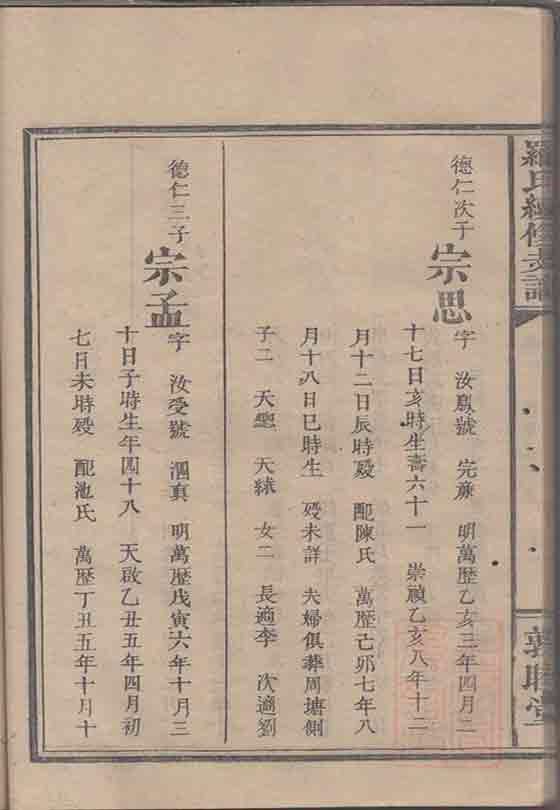 羅氏經修支譜
敦睦堂
德仁次子
宗思
字 汝 號 完 明萬歷乙亥三年四月二
十七日亥時生壽六十一 崇禎乙亥八年十二
月十二日辰時歿 配陳氏 萬歷己夘七年八
月十八日巳時生 歿未詳 夫婦俱葬周塘側
子二 天 天 女二 長適李 次適劉
德仁三子
宗孟
字 汝受號 泗真 明萬歷戊寅六年十月三
十日子時生年四十八 天啟乙丑五年四月初
七日未時歿 配池氏 萬歷丁丑五年十月十